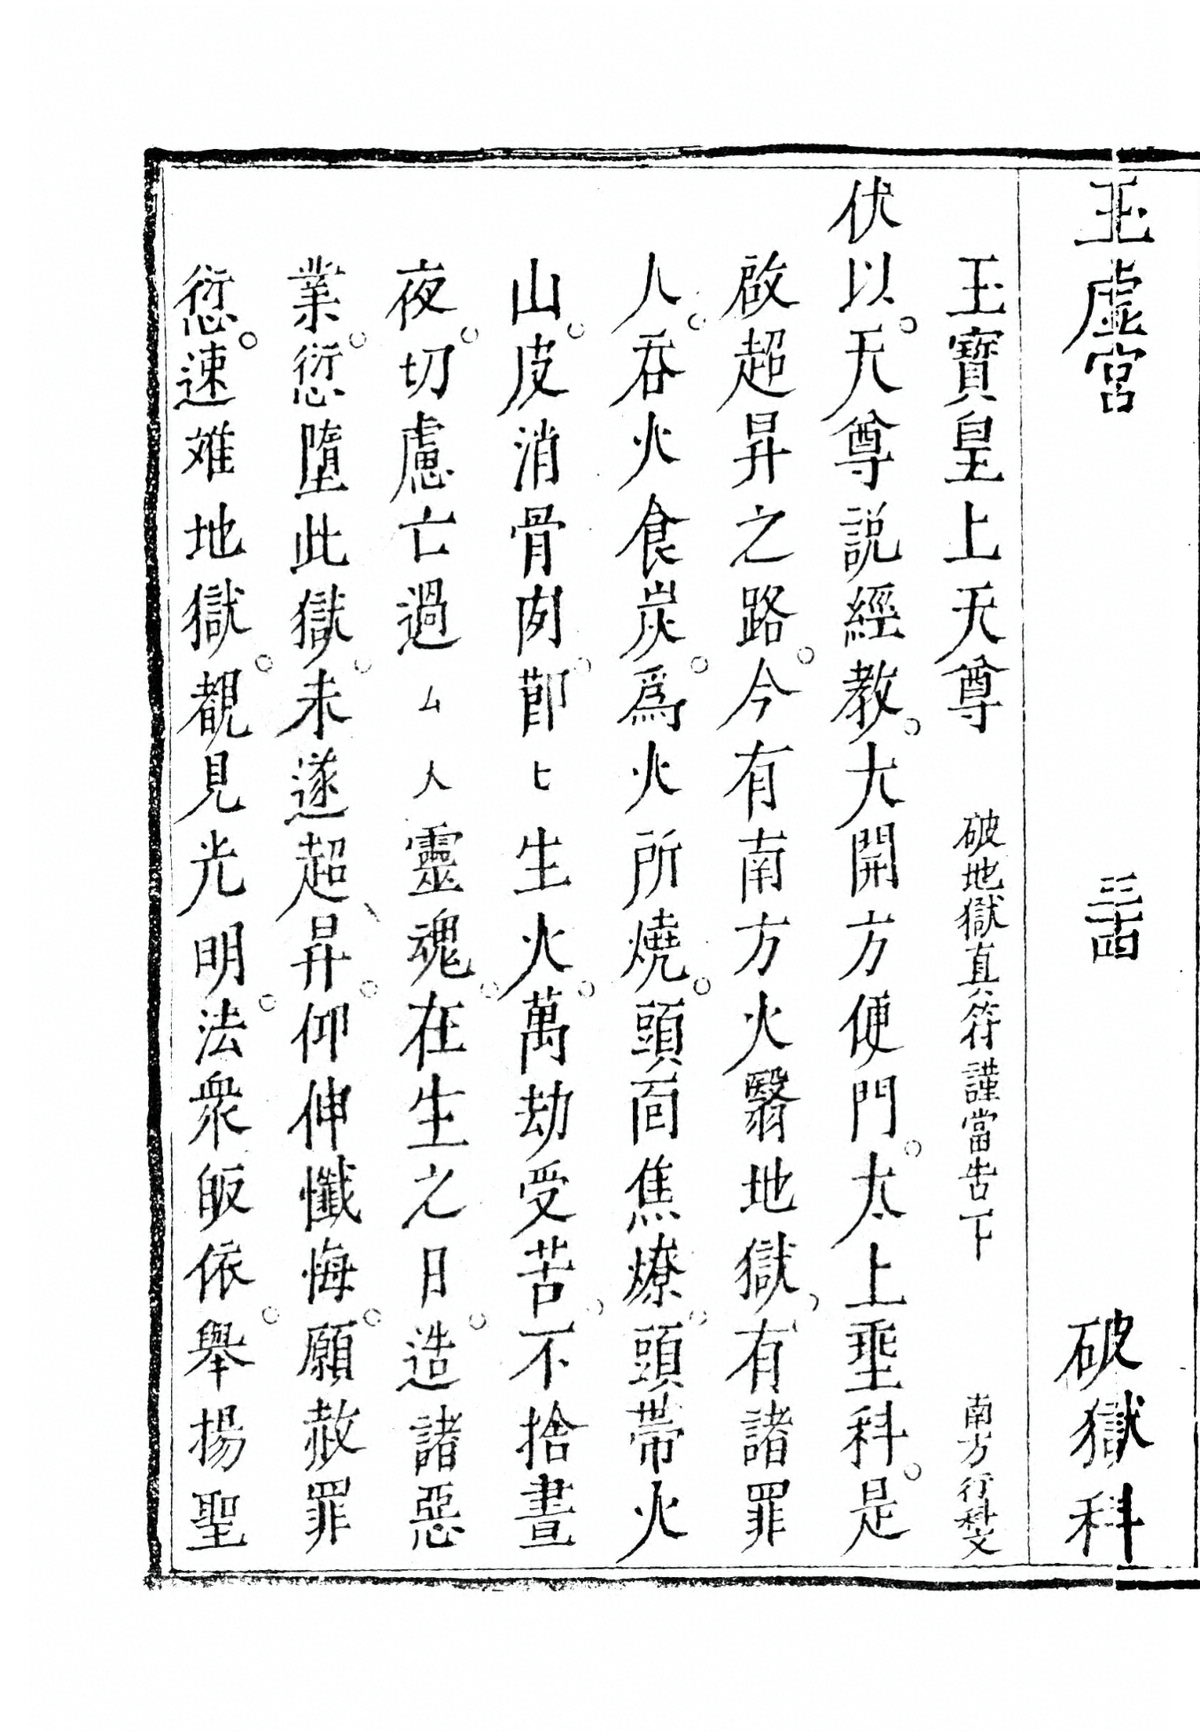 玉虛宮 三十四 破獄科
玉寶皇上天尊 破地獄真符謹當告下 南方行科文
伏以。天尊説經教。大開方便門。太上垂科。是
啟超昇之路。今有南方火翳地獄。有諸罪
人。吞火食炭。爲火所燒。頭面焦燎。頭帶火
山。皮消骨肉。節ヒ生火。萬劫受苦。不捨晝
夜。切慮亡過厶人靈魂。在生之日。造諸惡
業。愆墮此獄。未遂超昇。仰伸懺悔。願赦罪
愆。速離地獄。覩見光明。法衆皈依。舉揚聖